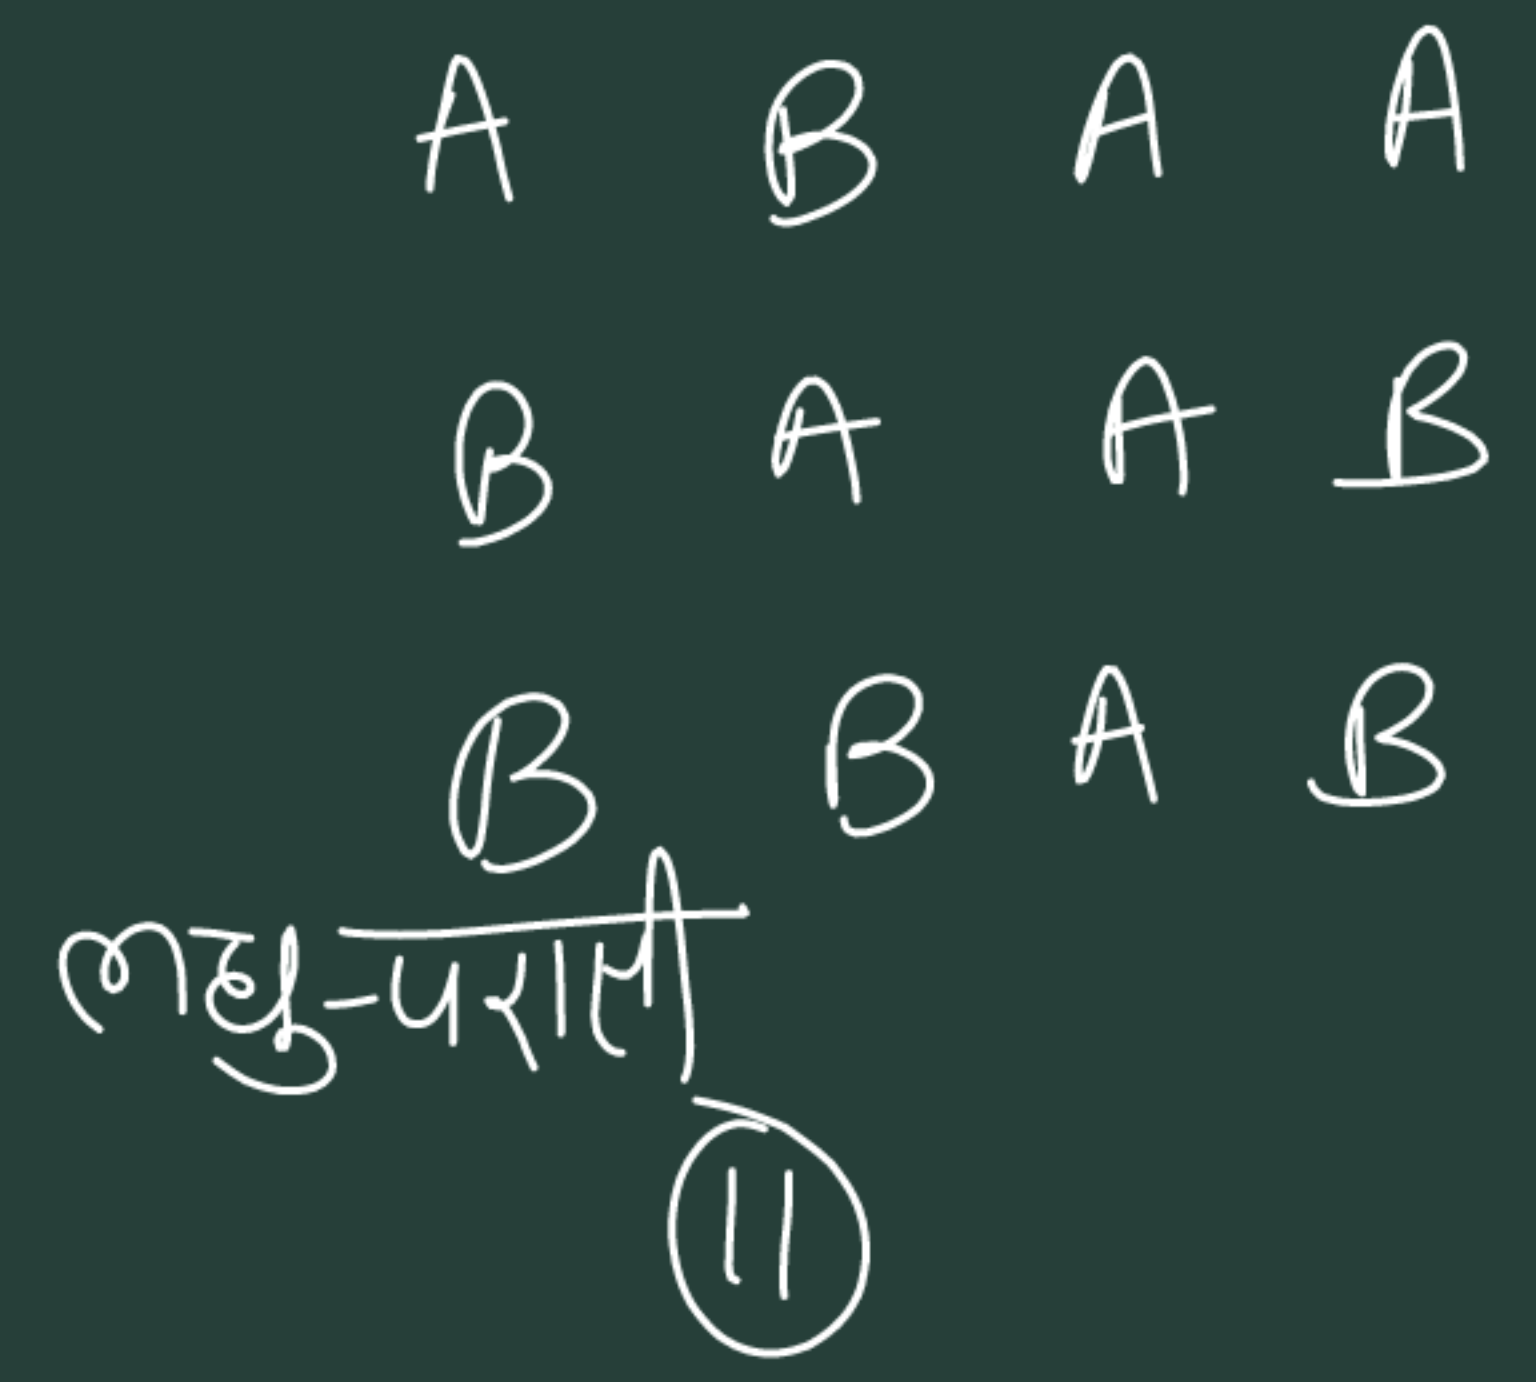 A B A A
B A A B
B B A B
लघु-परासी
11